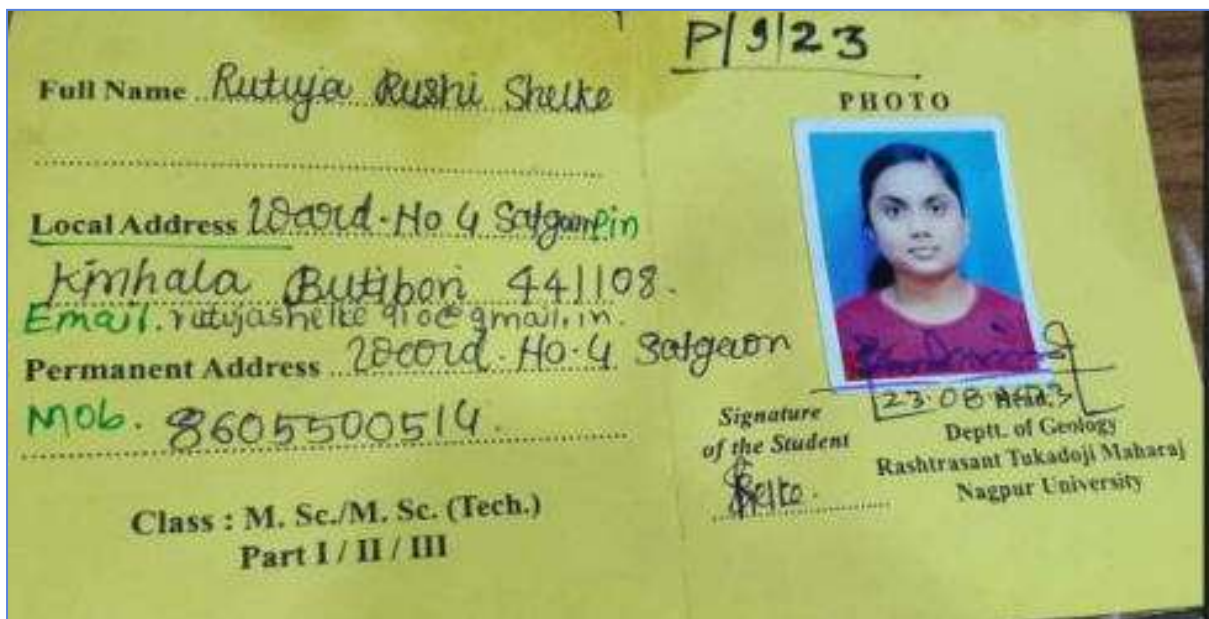 P/9/23
Full Name Rutuja Rushi Shelke
PHOTO
Local Address Ward-No 4 Satgaon Pin
Kinhala Butibori 441108.
Email. rutujashelke910@gmail.in.
Permanent Address Word-No-4 Satgaon
Mob. 8605500514.
Class : M. Sc./M. Sc. (Tech.)
Part I / II / III
Signature
of the Student
Shelke.
23.08.2023
Head,
Deptt. of Geology
Rashtrasant Tukadoji Maharaj
Nagpur University